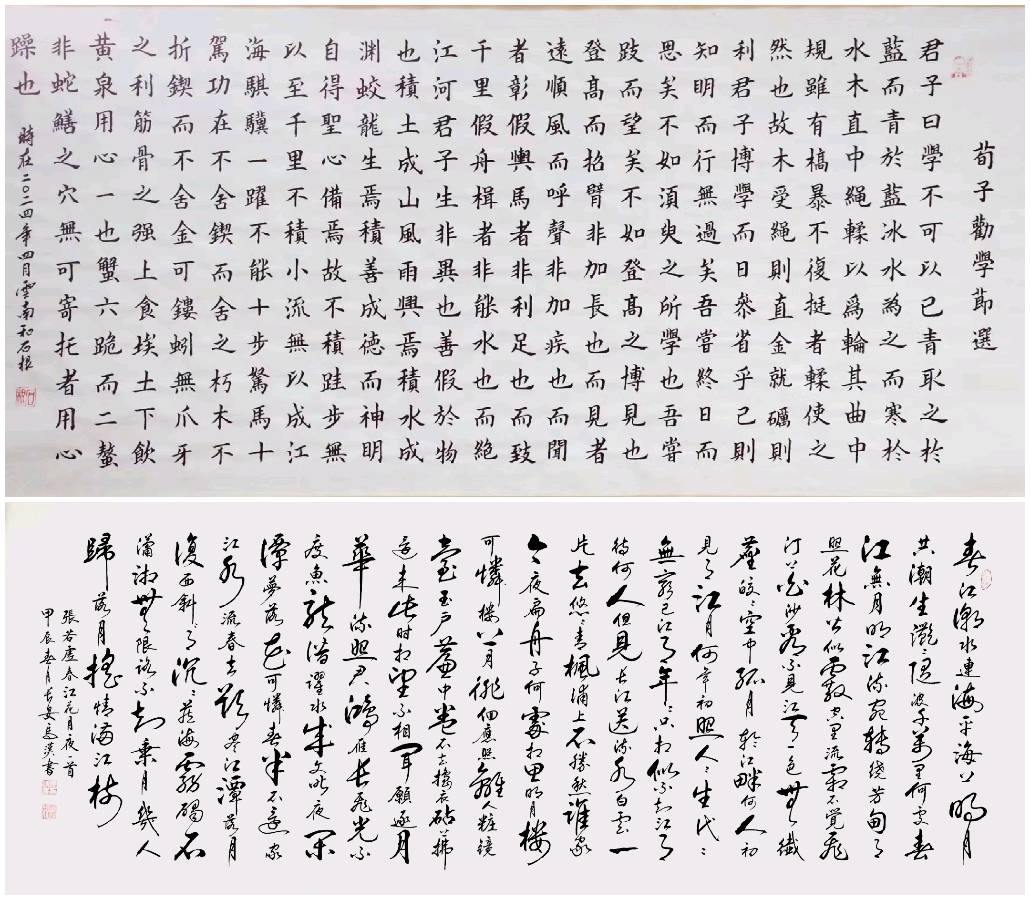 荀子勸學節選
君子曰學不可以已青取之於
藍而青於藍冰水為之而寒於
水木直中繩輮以爲輪其曲中
規雖有槁暴不復挺者輮使之
然也故木受繩則直金就礪則
利君子博學而日叅省乎己則
知明而行無過矣吾嘗終日而
思矣不如須臾之所學也吾嘗
跂而望矣不如登髙之博見也
登髙而招臂非加長也而見者
遠順風而呼聲非加疾也而聞
者彰假輿馬者非利足也而致
千里假舟楫者非能水也而絕
江河君子生非異也善假於物
也積土成山風雨興焉積水成
淵蛟龍生焉積善成德而神明
自得聖心備焉故不積跬步無
以至千里不積小流無以成江
海騏驥一躍不能十步駑馬十
駕功在不舍鍥而舍之朽木不
折鍥而不舍金可鏤蚓無爪牙
之利筋骨之强上食埃土下飲
黃泉用心一也蟹六跪而二螯
非蛇鱔之穴無可寄托者用心
躁也
時在二〇二四年四月雲南和石根
春江潮水連海平海上明月
共潮生灩灩隨波千萬里何處春
江無月明江流宛轉繞芳甸月
照花林皆似霰空里流霜不覺飛
汀上白沙看不見江天一色無纖
塵皎皎空中孤月輪江畔何人初
見月江月何年初照人人生代代
無窮已江月年年只相似不知江月
待何人但見長江送流水白雲一
片去悠悠青楓浦上不勝愁誰家
今夜扁舟子何處相思明月樓
可憐樓上月徘徊應照離人粧鏡
臺玉戶簾中卷不去擣衣砧上拂
還來此時相望不相聞願逐月
華流照君鴻雁長飛光不
度魚龍潛躍水成文昨夜閒
潭夢落花可憐春半不還家
江水流春去欲盡江潭落月
復西斜斜月沉沉藏海霧碣石
瀟湘無限路不知乘月幾人
歸落月搖情滿江樹
張若虛春江花月夜一首
甲辰春月長安書